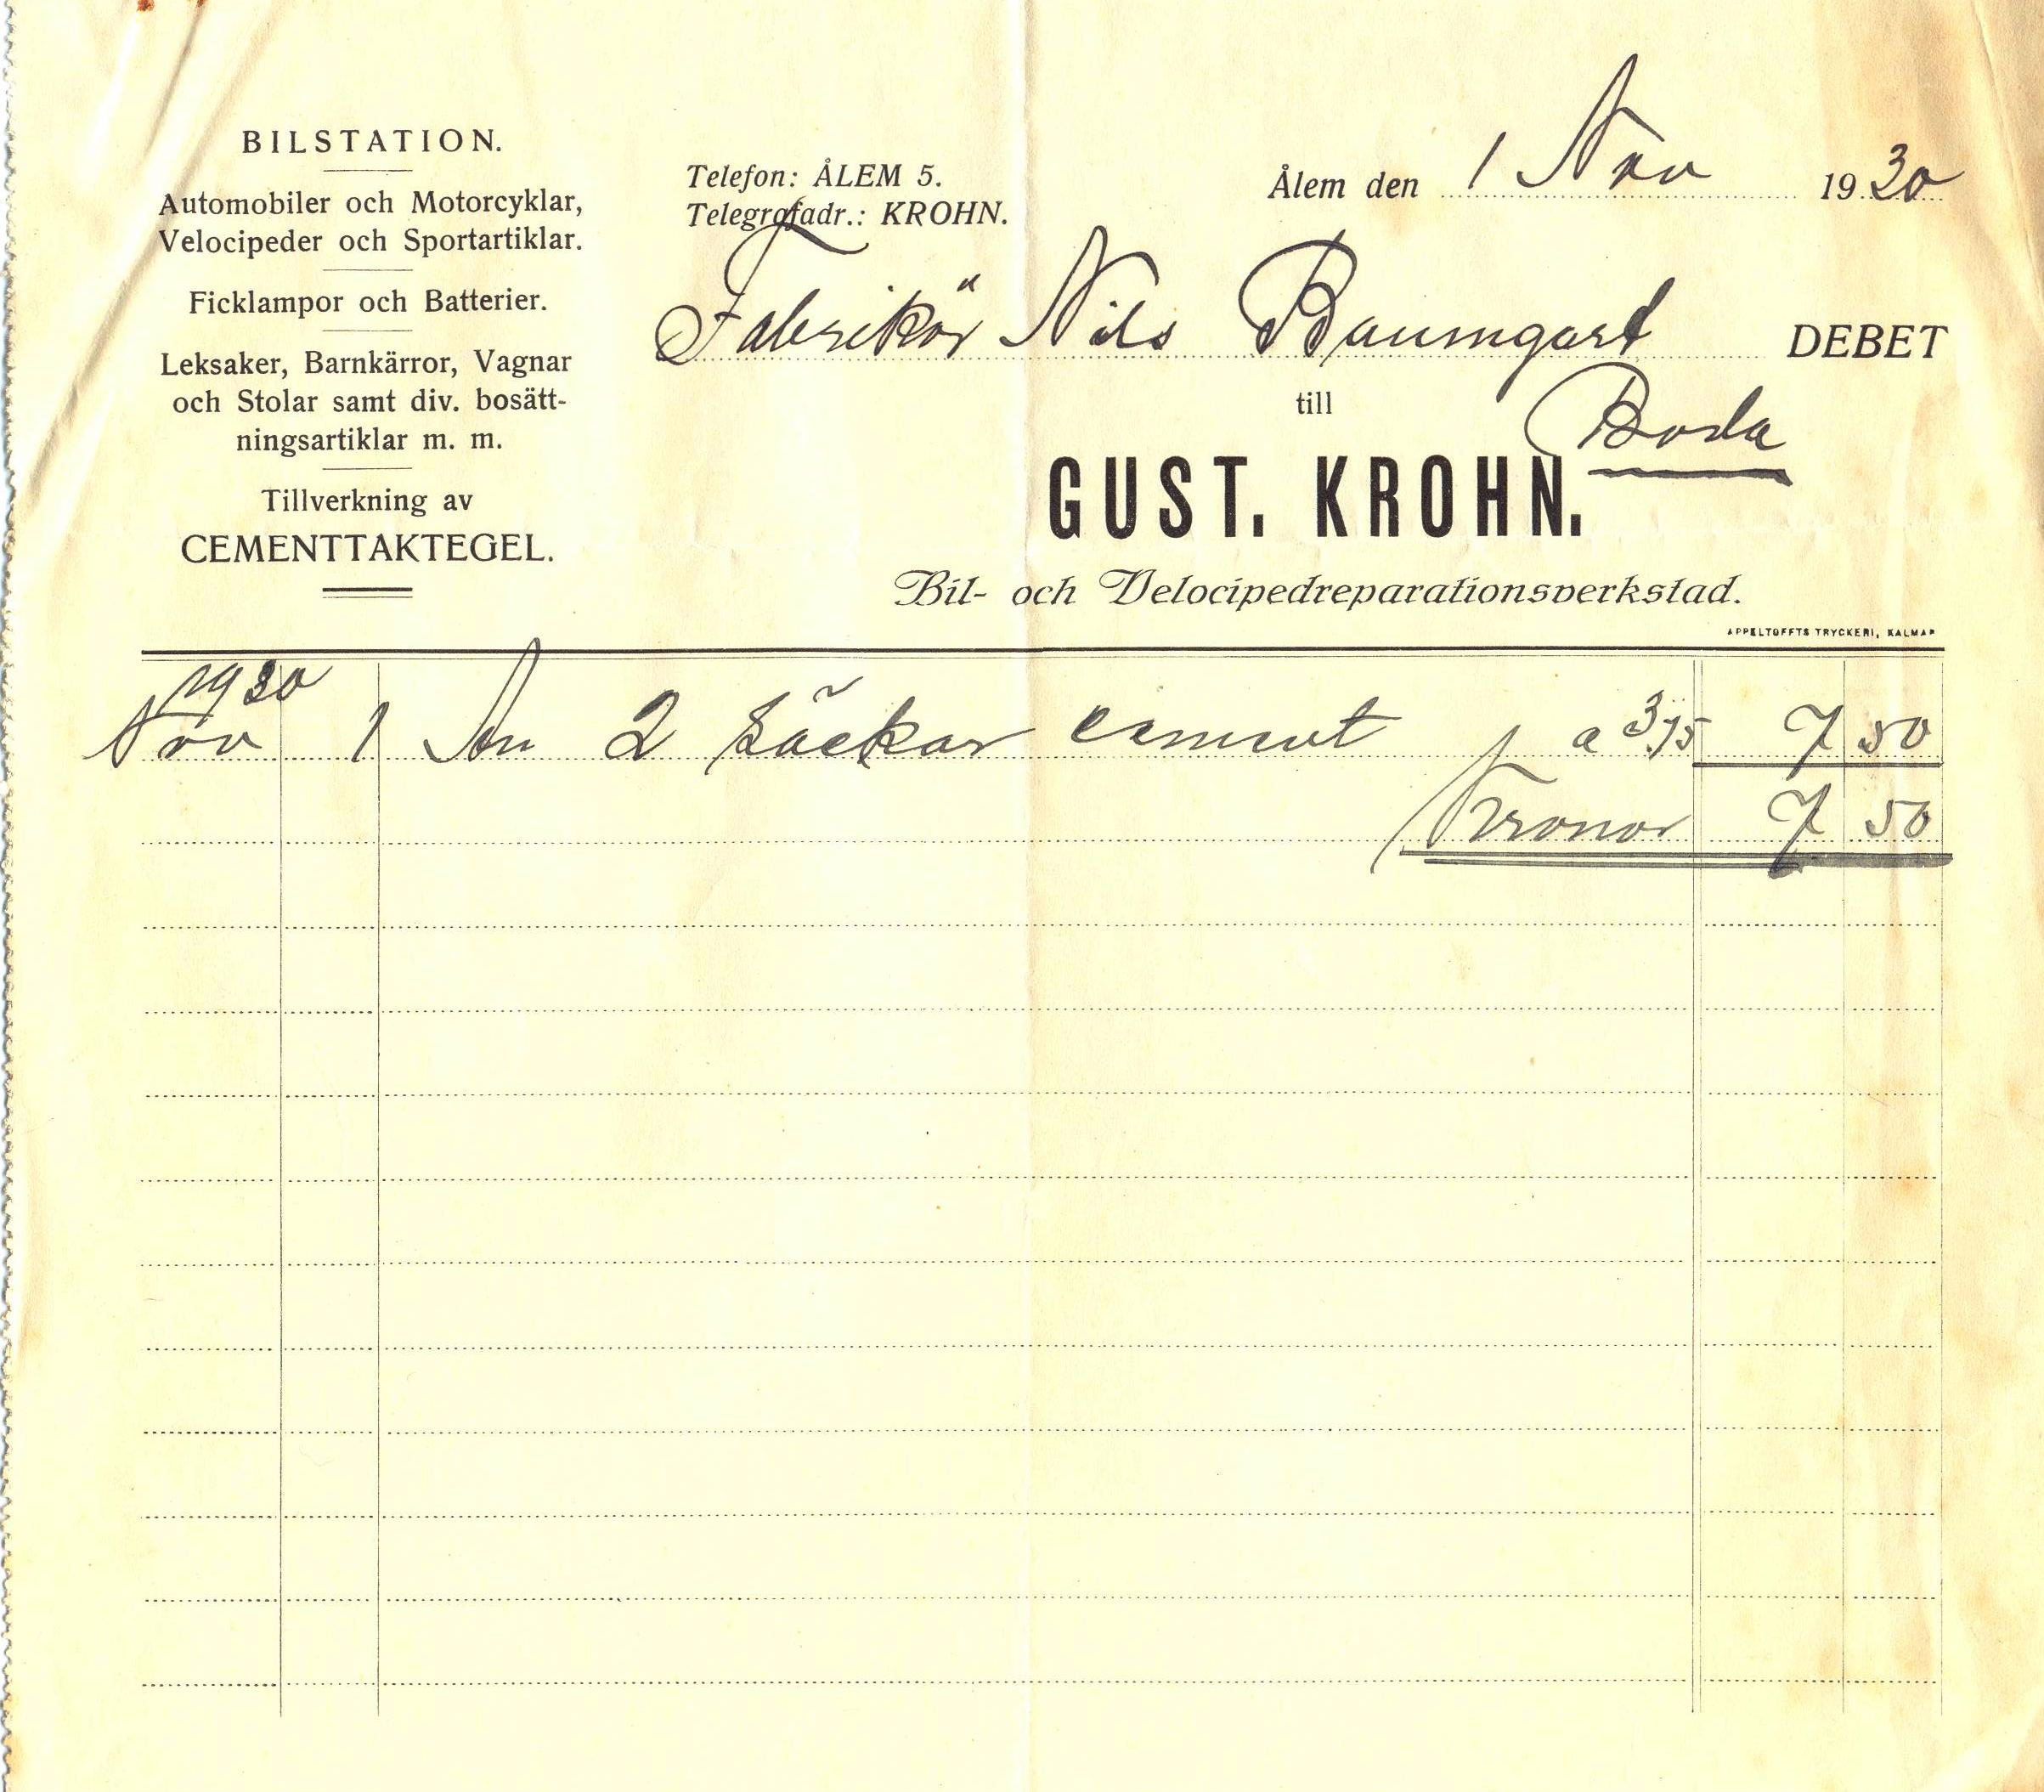 BILSTATION.
Automobiler och Motorcyklar,
Velocipeder och Sportartiklar.
Ficklampor och Batterier.
Leksaker, Barnkärror, Vagnar
och Stolar samt div. bosätt-
ningsartiklar m. m.
Tillverkning av
CEMENTTAKTEGEL.
Telefon: ÅLEM 5.
Telegrafadr.: KROHN.
Ålem den 1 Nov 1930
Fabrikör Nils Baumgart DEBET
till
Boda
GUST. KROHN.
Bil- och Velocipedreparationsverkstad.
APPELTOFFTS TRYCKERI, KALMAR
1930
Nov 1 An 2 Säckar cement a 3,75 7 50
Kronor 7 50